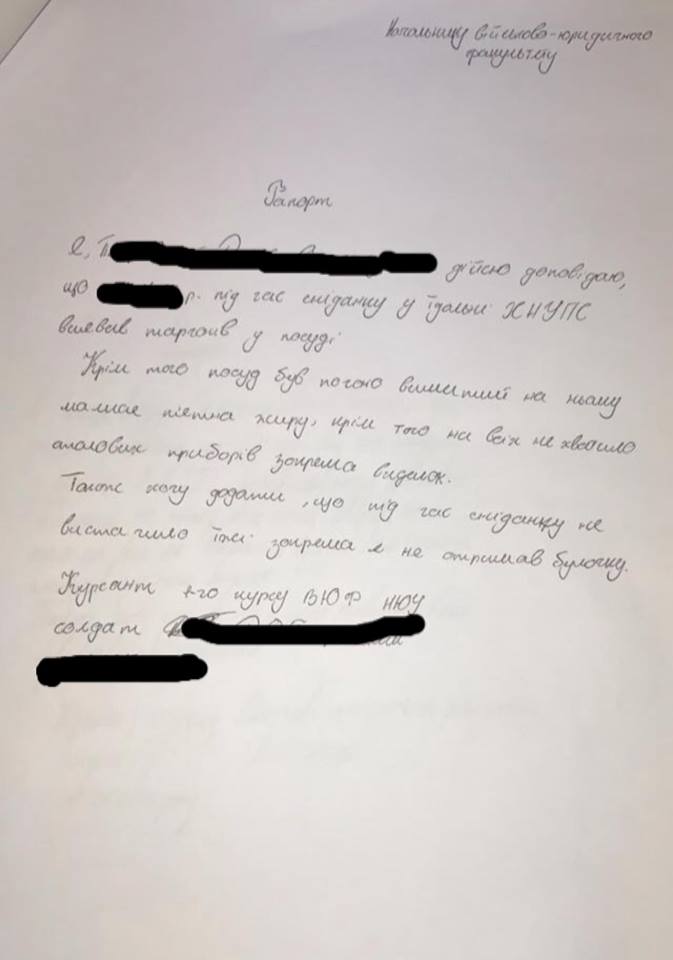 Начальнику військово-юридичного
факультету
Рапорт
Я, П дійсно доповідаю,
що р. під час сніданку у їдальні ХНУПС
виявив тарганів у посуді
Крім того посуд був погано вимитий на ньому
малися пятна жиру, крім того на всіх не хватило
столових приборів зокрема виделок.
Також хочу додати, що під час сніданку не
вистачило їжі зокрема я не отримав булочку.
Курсант 1-го курсу ВЮФ НЮУ
солдат